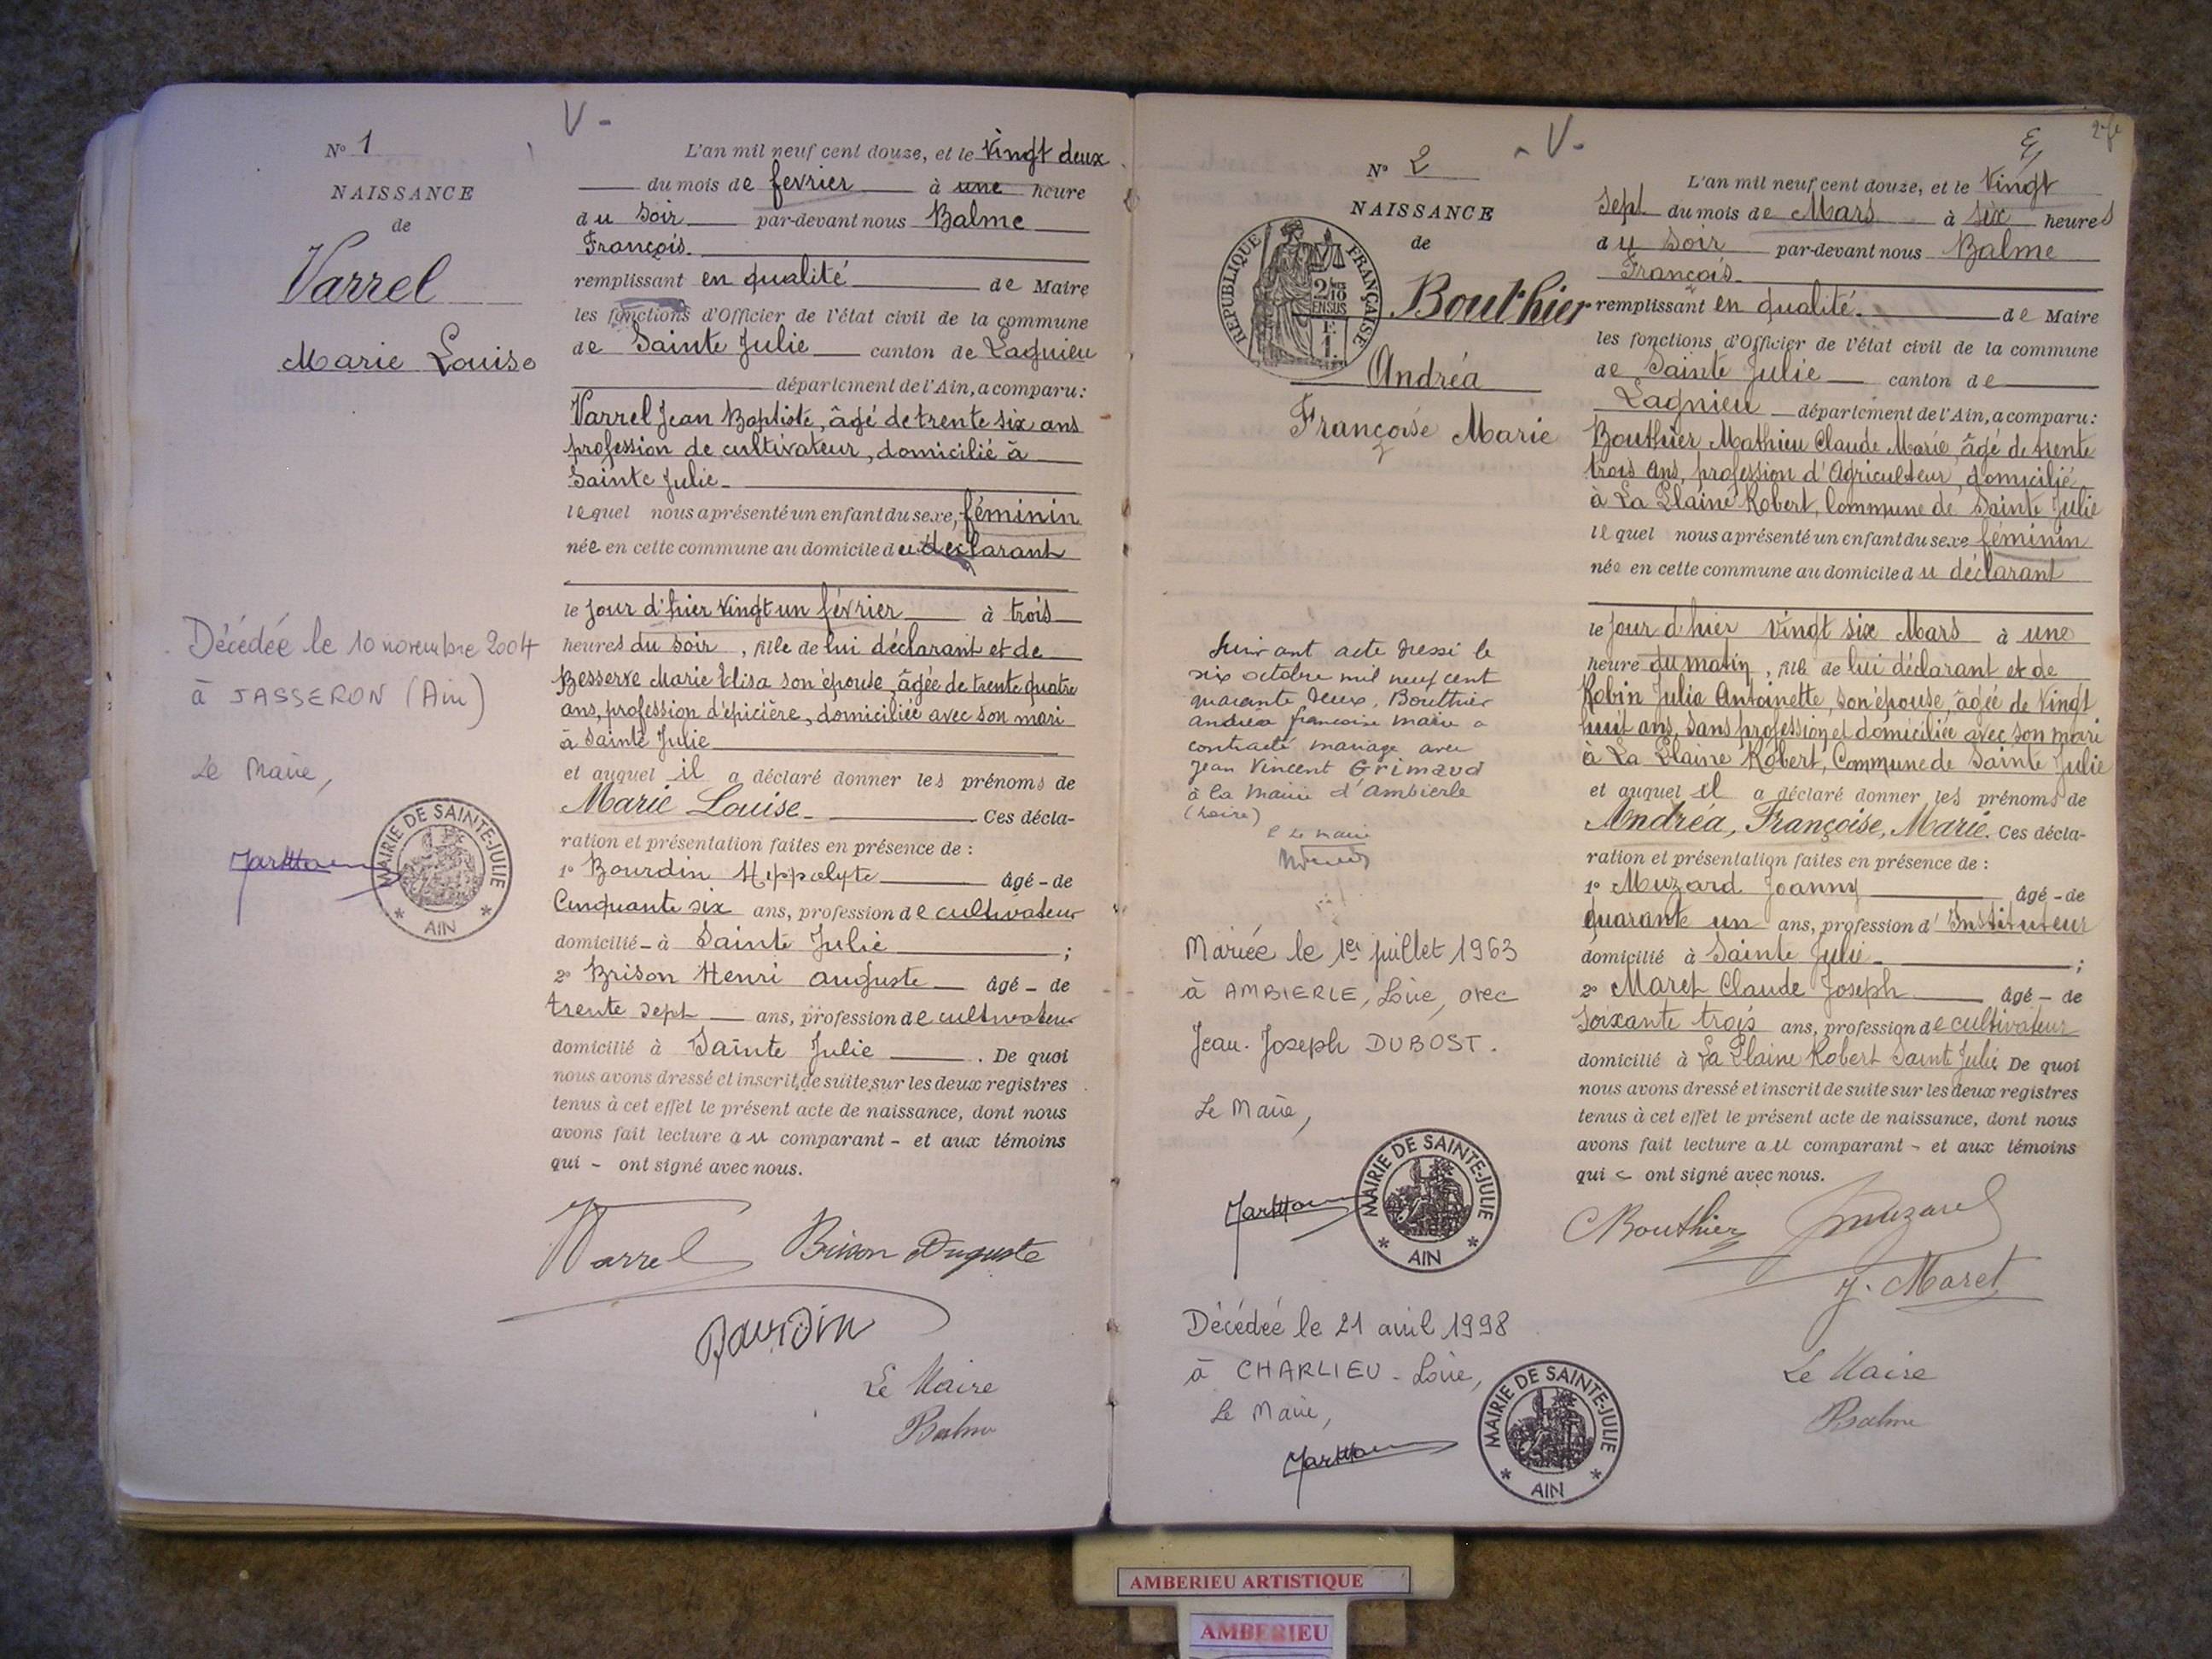 V -
N° 1
NAISSANCE
de
Varrel
Marie Louise
L'an mil neuf cent douze, et le Vingt deux
du mois de février à une heure
du Soir par-devant nous Balme
François.
remplissant en qualité de Maire
les fonctions d'Officier de l'état civil de la commune
de Sainte Julie canton de Lagnieu
département de l'Ain, a comparu:
Varrel Jean Baptiste, âgé de trente six ans
profession de cultivateur, domicilié à
Sainte Julie
lequel nous a présenté un enfant du sexe, féminin
née en cette commune au domicile du déclarant
le Jour d'hier Vingt un février à trois
heures du soir, fille de lui déclarant et de
Besserve Marie Elisa son épouse, âgée de trente quatre
ans, profession d'épicière, domiciliée avec son mari
à Sainte Julie
et auquel il a déclaré donner les prénoms de
Marie Louise. Ces décla-
ration et présentation faites en présence de :
1° Bourdin Hippolyte âgé - de
Cinquante six ans, profession de cultivateur
domicilié - à Sainte Julie ;
2° Brison Henri Auguste âgé - de
trente sept ans, profession de cultivateur
domicilié à Sainte Julie . De quoi
nous avons dressé et inscrit de suite sur les deux registres
tenus à cet effet le présent acte de naissance, dont nous
avons fait lecture au comparant - et aux témoins
qui - ont signé avec nous.
Varrel Brison Auguste
Bourdin
Le Maire
Balme
Décédée le 10 novembre 2004
à JASSERON (Ain)
Le Maire,
MAIRIE DE SAINTE-JULIE
* AIN *
- V -
N° 2
NAISSANCE
de
REPUBLIQUE FRANÇAISE
2/10
EN SUS
1 F.
Bouthier
Andréa
Françoise Marie
L'an mil neuf cent douze, et le Vingt
Sept du mois de Mars à six heures
du Soir par-devant nous Balme
François
remplissant en qualité de Maire
les fonctions d'Officier de l'état civil de la commune
de Sainte Julie canton de
Lagnieu département de l'Ain, a comparu:
Bouthier Mathieu Claude Marie, âgé de trente
trois ans, profession d'Agriculteur, domicilié
à La Plaine Robert, Commune de Sainte Julie
lequel nous a présenté un enfant du sexe féminin
née en cette commune au domicile du déclarant
le Jour d'hier Vingt six Mars à une
heure du matin, fille de lui déclarant et de
Robin Julie Antoinette, son épouse, âgée de Vingt
huit ans, sans profession et domiciliée avec son mari
à La Plaine Robert, Commune de Sainte Julie
et auquel il a déclaré donner les prénoms de
Andréa, Françoise, Marie. Ces décla-
ration et présentation faites en présence de :
1° Muzard Joanny âgé - de
quarante un ans, profession d'Instituteur
domicilié à Sainte Julie ;
2° Maret Claude Joseph âgé - de
Soixante trois ans, profession de cultivateur
domicilié à La Plaine Robert Sainte Julie. De quoi
nous avons dressé et inscrit de suite sur les deux registres
tenus à cet effet le présent acte de naissance, dont nous
avons fait lecture au comparant - et aux témoins
qui - ont signé avec nous.
CBouthier Muzard
J. Maret
Le Maire
Balme
Suivant acte dressé le
six octobre mil neuf cent
quarante deux, Bouthier
andréa françoise marie a
contracté mariage avec
Jean Vincent Grimaud
à la Mairie d'Ambierle
(Loire)
le maire
Mariée le 1er juillet 1963
à AMBIERLE, Loire, avec
Jean-Joseph DUBOST.
Le Maire,
MAIRIE DE SAINTE-JULIE
* AIN *
Décédée le 21 avril 1998
à CHARLIEU - Loire,
Le Maire,
MAIRIE DE SAINTE-JULIE
* AIN *
AMBERIEU ARTISTIQUE
AMBERIEU